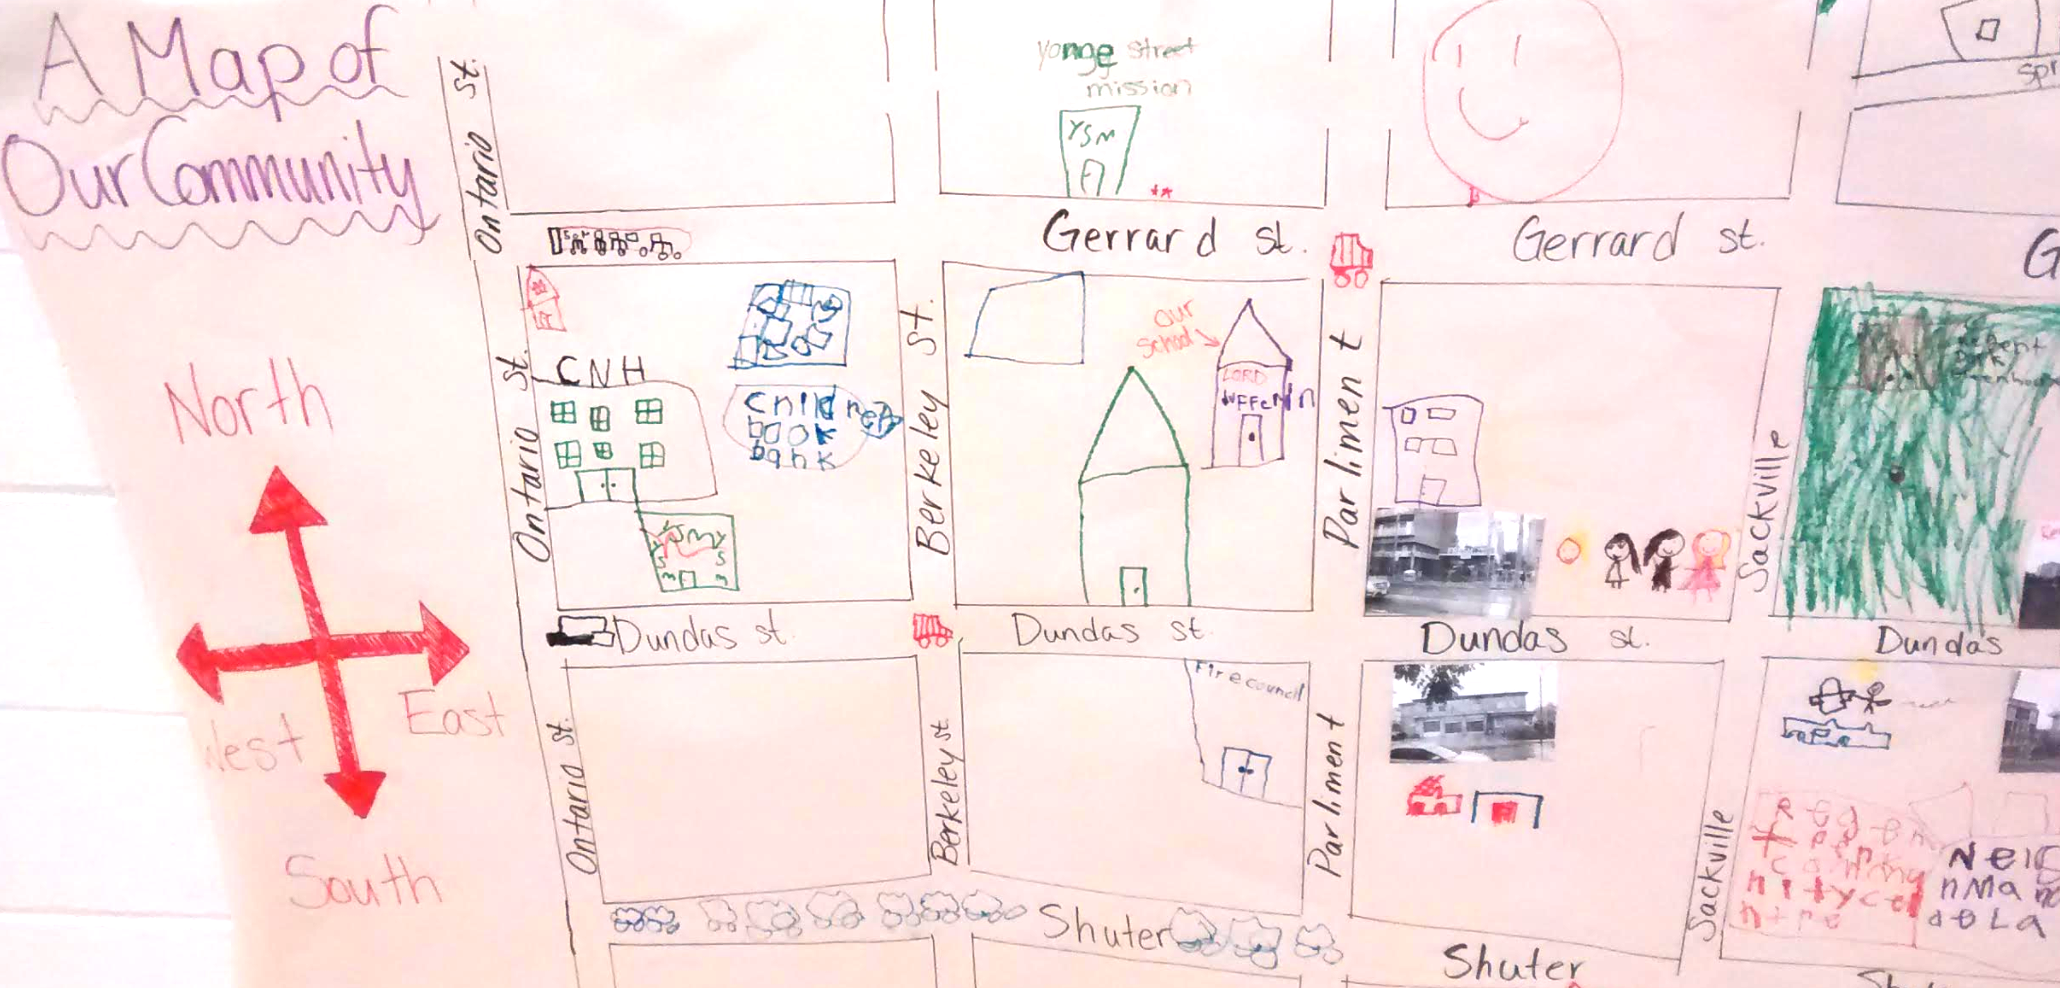 A Map of
Our Community
North
West
East
South
Ontario St.
Yonge Street
mission
YSM
Gerrard St.
Gerrard St.
G
Spr
Ontario St.
CNH
Children
book
bank
Berkeley St.
our
School
LORD
Dufferin
Parliment
Sackville
Regent
Park
Greenhouse
Dundas St.
Dundas St.
Dundas St.
Dundas
Ontario St.
Berkeley St.
Fire council
Parliment
Sackville
Nels
nMan
deLa
Shuter
Shuter